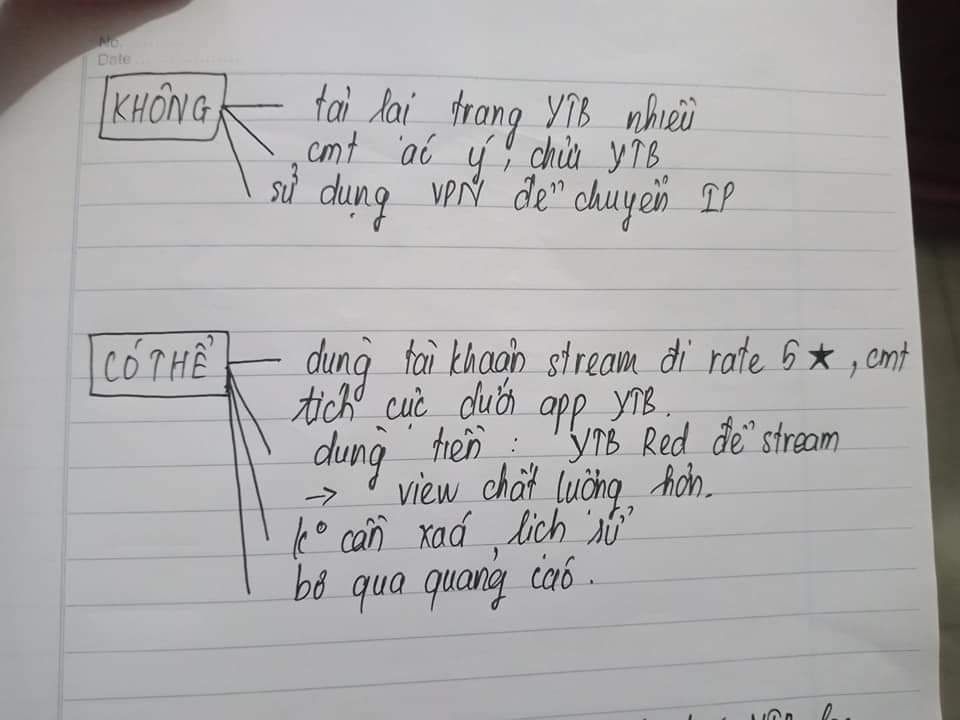 No.
Date
KHÔNG
tải lại trang YTB nhiều
cmt ác ý, chửi YTB
sử dụng VPN để chuyển IP
CÓ THỂ
dùng tài khoản stream đi rate 5 ★, cmt
tích cực dưới app YTB.
dùng tiền: YTB Red để stream
→ view chất lượng hơn.
k° cần xoá lịch sử
bỏ qua quảng cáo.